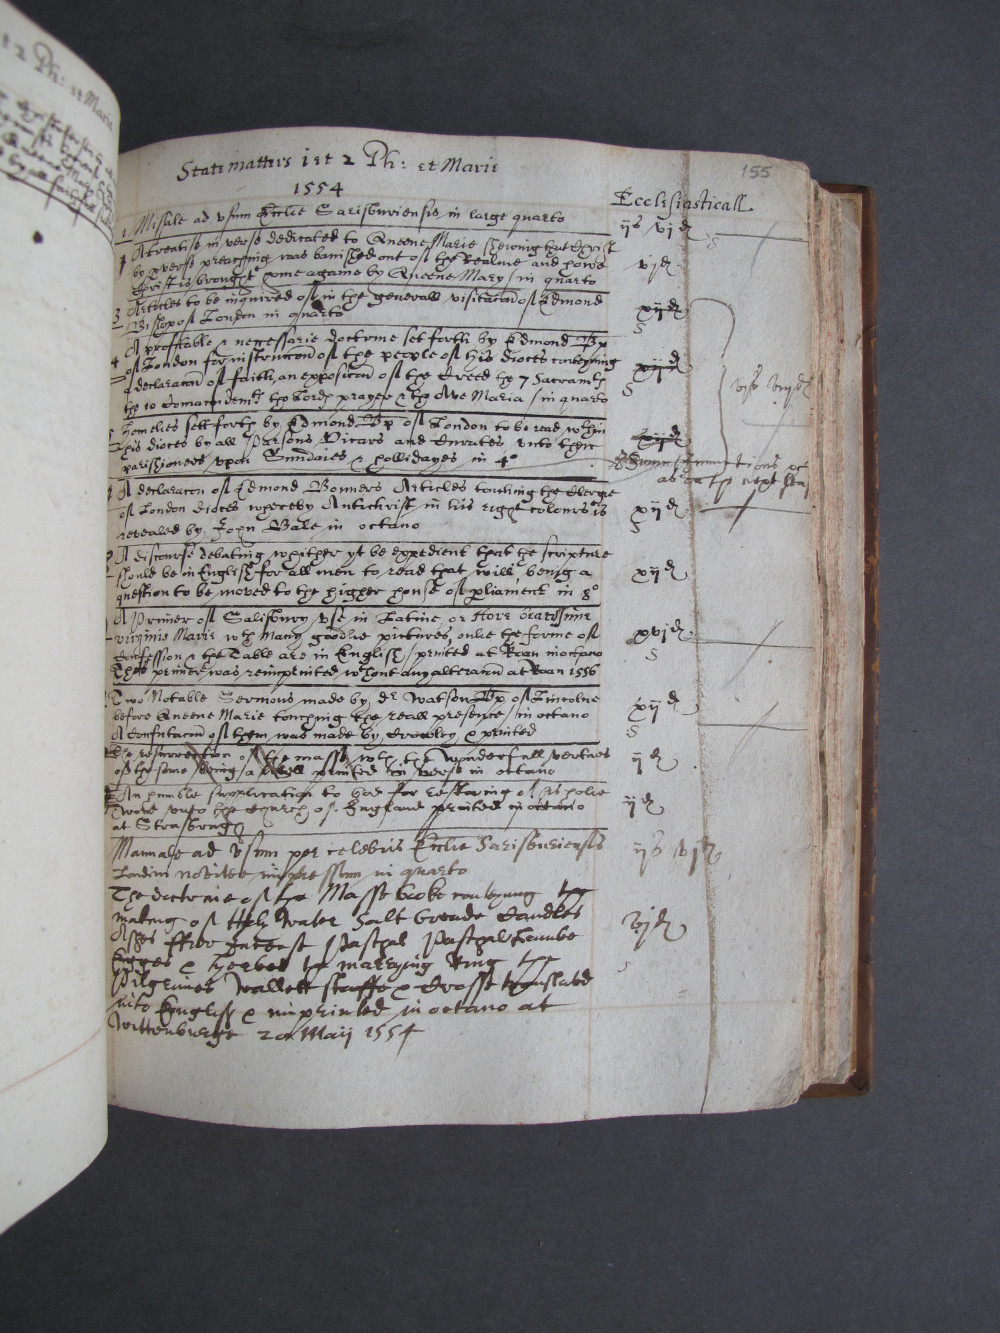 155
State matters 1 et 2 Ph: et Marie
1554
Ecclesiasticall
1 Missale ad usum Ecclie Sarisburiensis in large quarto ijs vjd
A treatise in verse dedicated to Queene Marie shewing that Christ
by pverse preaching was banished out of the Realme and howe
Christ is brought home againe by Queene Mary / in quarto vjd
3 Articles to be inquired of in the generall visitacon of Edmond
Bishop of London in quarto xijd
4 A profitable & necessarie doctrine set forth by Edmond Bp
of London for instruccon of the people of his dioces conteyning
a declaracon of faith, an exposicon of the Creed the 7 Sacramts
the 10 Comandemts the Lords prayer & the Ave Maria / in quarto xijd
Homelies sett forth by Edmond Bp of London to be read wthin
his dioces by all Persons Vicars and Curates unto their
parishioners upon Sundaies & hollidayes in 4o xijd
A declaracon of Edmond Bonners Articles touching the Clergie
of London dioces whereby Antichrist in his right colours is
revealed by John Bale in octavo xijd
A discourse debating whither yt be expedient that the scripture
should be in English for all men to read that will, being a
question to be moved to the higher house of pliament in 8o xijd
A Primer of Salisbury use in Latine, or Hore beatissime
virginis Marie wth many goodlie pictures, onlie the forme of
Confession & the Table are in English / printed at Roan in octavo
This primer was reimprinted wthout any alteracon at Roan 1556 xvjd
Two Notable Sermons made by dr Watson Bp of Lincolne
before Queene Marie touching the reall presence / in octavo
A Confutacon of them was made by Crowley & printed xijd
The resurrection of the masse wth the Wonderfull vertues
of the same being a printed in verse in octavo ijd
An humble supplication to God for restoring of his holie
Word unto the Church of England printed in octavo
at Strasburgh ijd
Manuale ad Usum percelebris Ecclie Sarisburiensis
Londini noviter impressum in quarto ijs vjd
The doctrine of the Masse booke conteyning the
making of Holy Water Salt breade Candles
Ashes ffier Incense Paschal Paschal Lambe
Egges & Herbes the marrying Ring the
Pilgrimes Wallett staffe & Crosse translated
into English & imprinted in octavo at
Wittenburge 20 Maij 1554 vjd